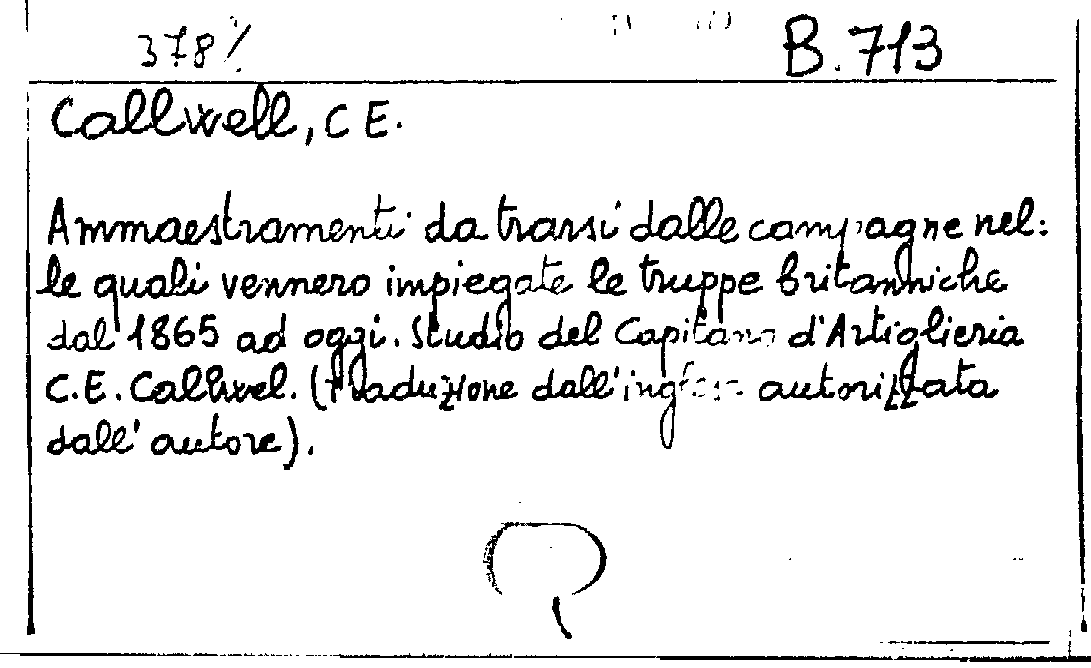 378% B.713
Callwell, C E.
Ammaestramenti da trarsi dalle campagne nel:
le quali vennero impiegate le truppe britanniche
dal 1865 ad oggi. Studio del Capitano d'Artiglieria
C.E. Callwel. (traduzione dall'inglese autorizzata
dall'autore).